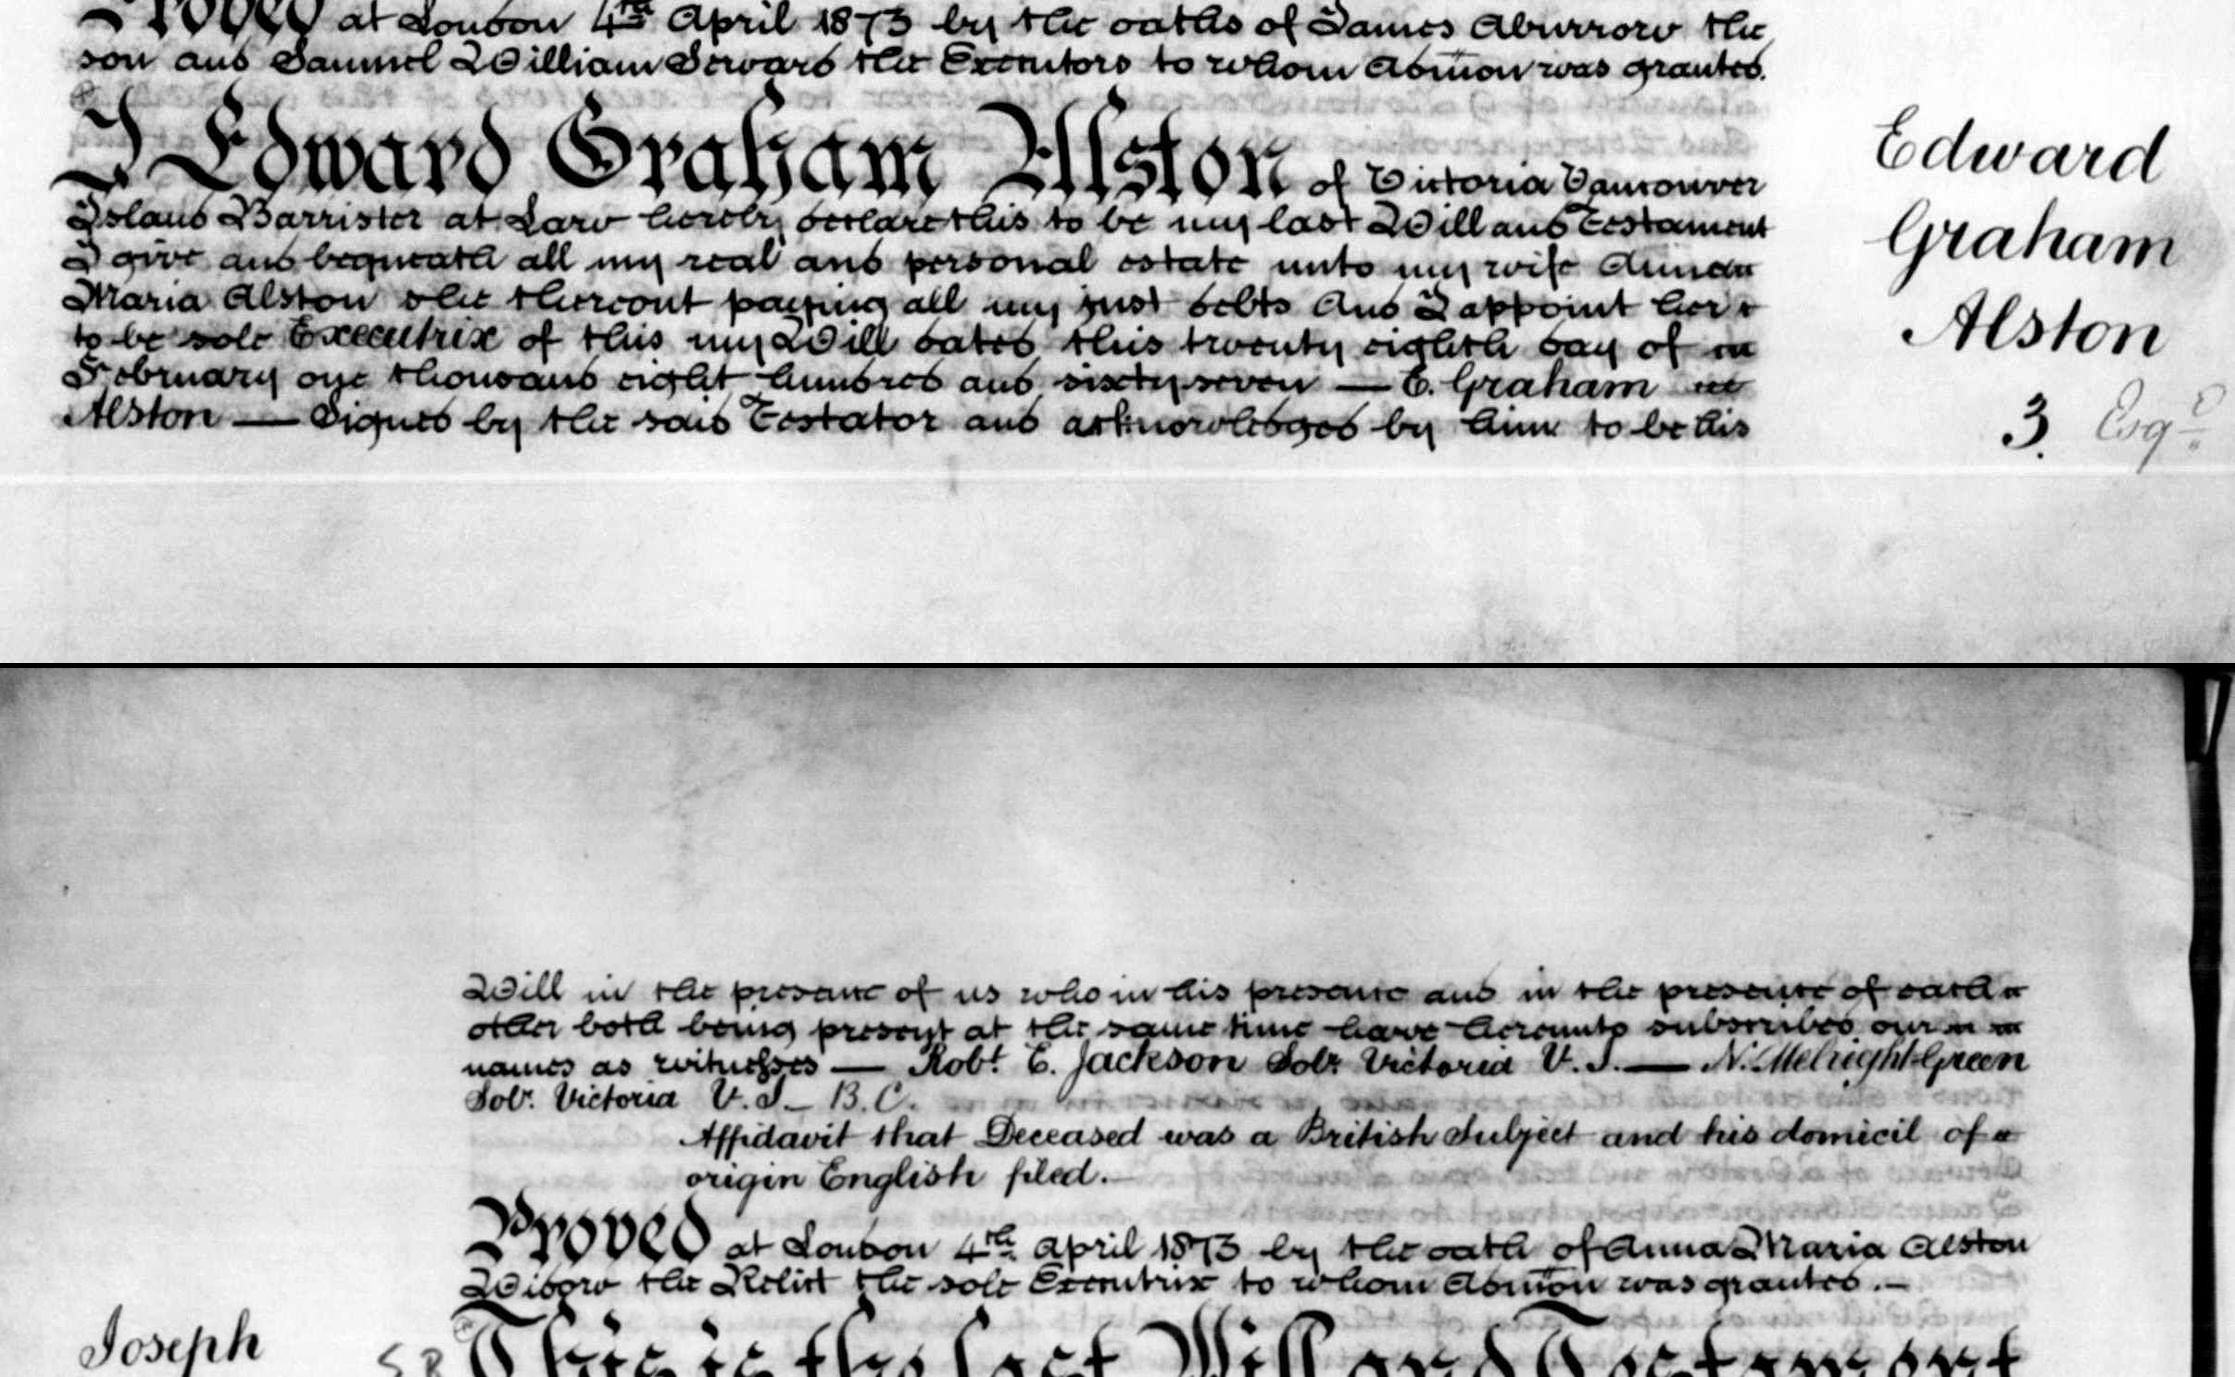 Proved at London 4th April 1873 by the oaths of James Aburrow the
son and Samuel William Seward the Executors to whom Admon was granted.
I Edward Graham Alston of Victoria Vancouver
Island Barrister at Law hereby declare this to be my last Will and Testament
I give and bequeath all my real and personal estate unto my wife
Maria Alston she thereout paying all my just debts And I appoint her
to be sole Executrix of this my Will dated this twenty eighth day of
February one thousand eight hundred and sixty seven — E. Graham
Alston — Signed by the said Testator and acknowledged by him to be his
Edward
Graham
Alston
3. Esqre
Will in the presence of us who in his presence and in the presence of each
other both being present at the same time have hereunto subscribed our
names as witnesses — Robt. E. Jackson Solr. Victoria V. I. — N. Green
Solr. Victoria V. I — B. C.
Affidavit that Deceased was a British Subject and his domicil of
origin English filed.—
Proved at London 4th April 1873 by the oath of Anna Maria Alston
Widow the Relict the sole Executrix to whom Admon was granted.—
Joseph
This is the last Will and Testament